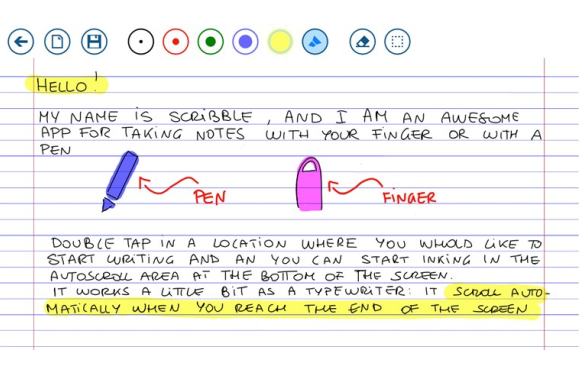 HELLO!
MY NAME IS SCRIBBLE, AND I AM AN AWESOME
APP FOR TAKING NOTES WITH YOUR FINGER OR WITH A
PEN
PEN
FINGER
DOUBLE TAP IN A LOCATION WHERE YOU WHOLD LIKE TO
START WRITING AND AN YOU CAN START INKING IN THE
AUTOSCROLL AREA AT THE BOTTOM OF THE SCREEN.
IT WORKS A LITTLE BIT AS A TYPEWRITER: IT SCROLL AUTO-
MATICALLY WHEN YOU REACH THE END OF THE SCREEN